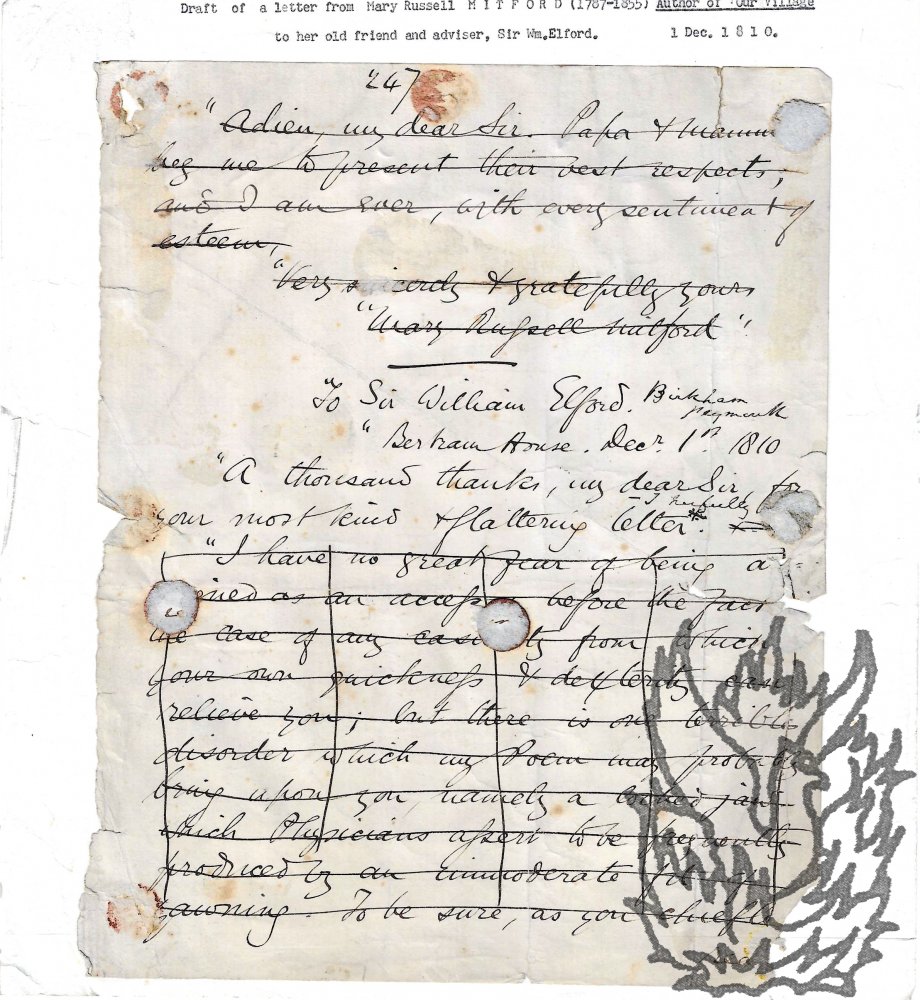 Draft of a letter from Mary Russell MITFORD (1787-1855) Author of "Our Village
to her old friend and adviser, Sir Wm.Elford. 1 Dec. 1810.
247
"Adieu, my dear Sir. Papa & Mamm
beg me to present their best respects;
and I am ever, with every sentiment of
esteem,
"Very sincerely & gratefully yours
"Mary Russell Mitford".
"To Sir William Elford. Bickham
Plymouth
"Bertram House. Decr. 1st. 1810
"A thousand thanks, my dear Sir, for
your most kind & flattering letter.*
"I have no great fear of being a
as an accessory before the fact
case of any from which
your own quickness & dexterity can
relieve you; but there is one terrible
disorder which my Poem may probably
bring upon you, namely a locked jaw
which Physicians assert to be frequently
produced by an immoderate fit of
yawning. To be sure, as you chiefly